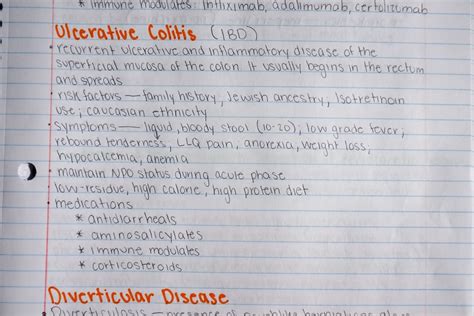 * immune modulates: infliximab, adalimumab, certolizumab
Ulcerative Colitis (IBD)
• recurrent ulcerative and inflammatory disease of the
superficial mucosa of the colon. It usually begins in the rectum
and spreads
• risk factors — family history, Jewish ancestry, Isotretinoin
use, caucasian ethnicity
• symptoms — liquid, bloody stool (10-20), low grade fever,
rebound tenderness, ↓ LLQ pain, anorexia, weight loss,
hypocalcemia, anemia
• maintain NPO status during acute phase
• low-residue, high calorie, high protein diet
• medications
* antidiarrheals
* aminosalicylates
* immune modulates
* corticosteroids
Diverticular Disease
Diverticulosis — presence of